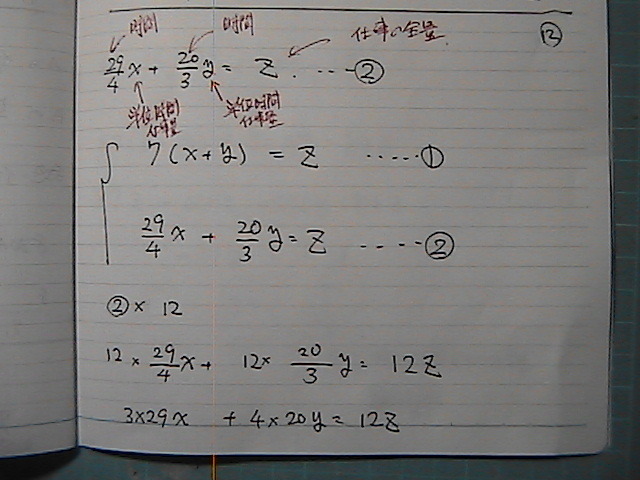 時間 時間 仕事の全量 ⑫
29/4 x + 20/3 y = Z ····②
単位時間 単位時間
仕事量 仕事量
7(x+y) = Z ·····①
29/4 x + 20/3 y = Z ····②
② × 12
12 × 29/4 x + 12 × 20/3 y = 12Z
3×29x + 4×20y = 12Z